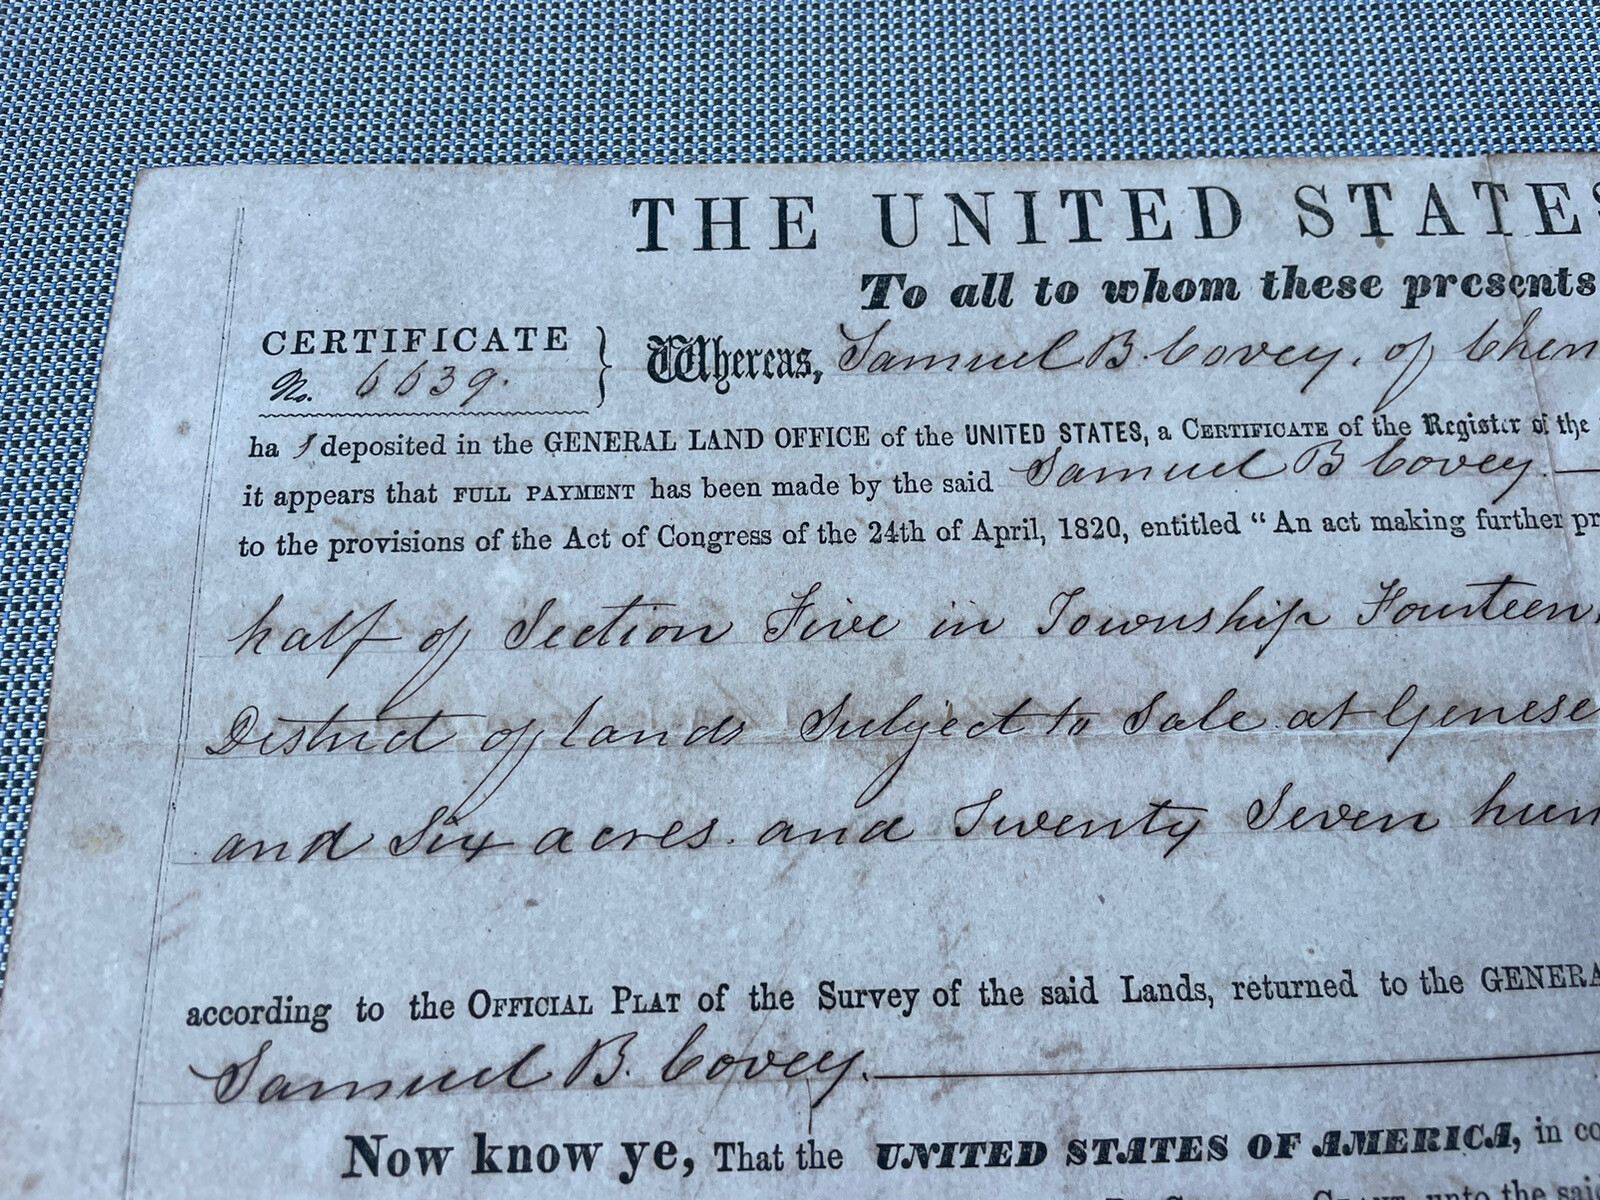 THE UNITED STATES
To all to whom these presents
CERTIFICATE
No. 6639.
Whereas, Samuel B. Covey, of Chen
ha s deposited in the GENERAL LAND OFFICE of the UNITED STATES, a CERTIFICATE of the Register of the
it appears that FULL PAYMENT has been made by the said Samuel B Covey.
to the provisions of the Act of Congress of the 24th of April, 1820, entitled “An act making further pr
half of Section Five in Township Fourteen,
District of lands Subject to Sale at Genese
and Six acres. and Twenty Seven hun
according to the OFFICIAL PLAT of the Survey of the said Lands, returned to the GENERA
Samuel B. Covey.
Now know ye, That the UNITED STATES OF AMERICA, in co
unto the said